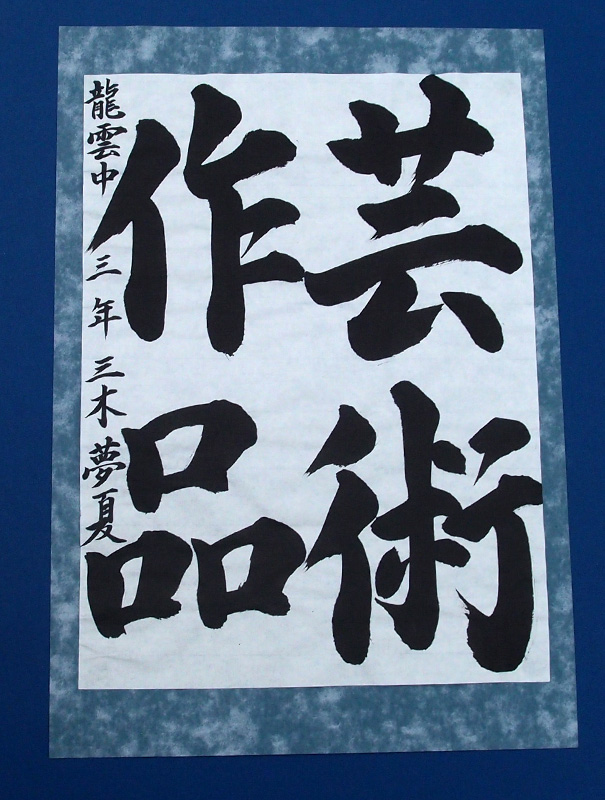 芸術
作品
龍雲中 三年 三木夢夏